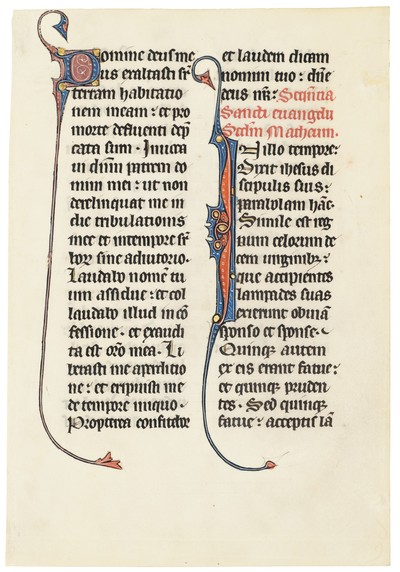 Domine deus me
us exaltasti sr̄
terram habitatio
nem meam : et pro
morte defluenti dep̄
cata sum . Invoca
vi dn̄m patrem do
mini mei : ut non
derelinquat me in
die tribulationis
mee et in tempore sr̄
bor̄ sine adiutorio .
Laudabo nomē tu
um assidue : et col
laudabo illud in cō
fessione . et exaudi
ta est orō mea . Li
berasti me a perditio
ne : et eripuisti me
de tempore iniquo .
Propterea confitebor
et laudem dicam
nomini tuo : dn̄e
deus nr̄ : Seqn̄cia
Sancti euangelii
Secdm̄ Matheum .
In illo tempore :
Dixit ihesus di
scipulis suis :
parabolam hāc .
Simile est reg
num celorum de
cem virginibȝ :
que accipientes
lampades suas
exierunt obviā
sponso et sponse .
Quinqȝ autem
ex eis erant fatue :
et quinqȝ pruden
tes . Sed quinqȝ
fatue : acceptis lā